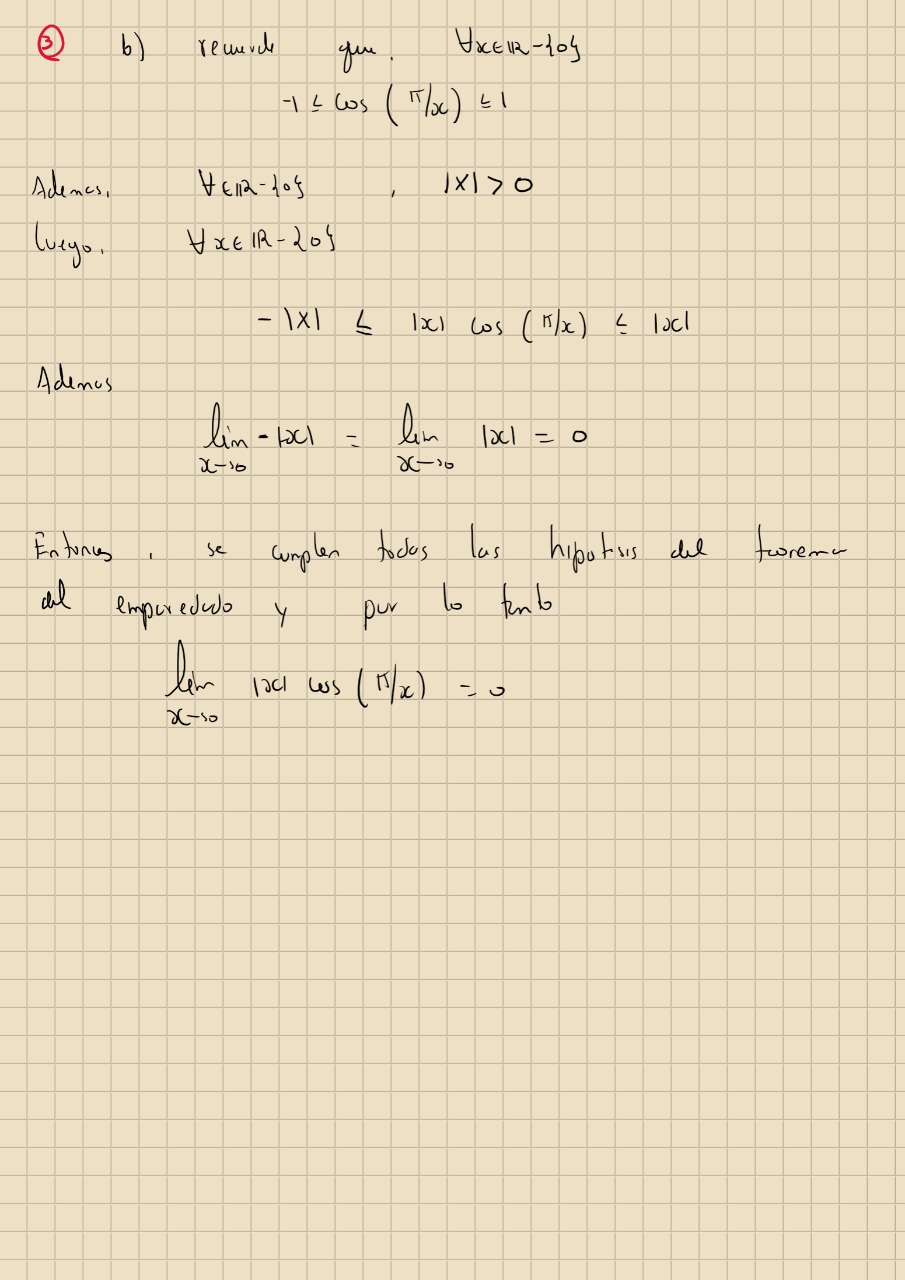 ③ b) recuerde que. ∀x∈ℝ-{0}
-1 ≤ cos (π/x) ≤ 1
Ademas. ∀∈ℝ-{0} , |x| > 0
luego. ∀x∈ℝ-{0}
-|x| ≤ |x| cos (π/x) ≤ |x|
Ademas
lim x→0 -|x| = lim x→0 |x| = 0
Entonces , se cumplen todas las hipotesis del teorema
del emparedado y por lo tanto
lim x→0 |x| cos (π/x) = 0